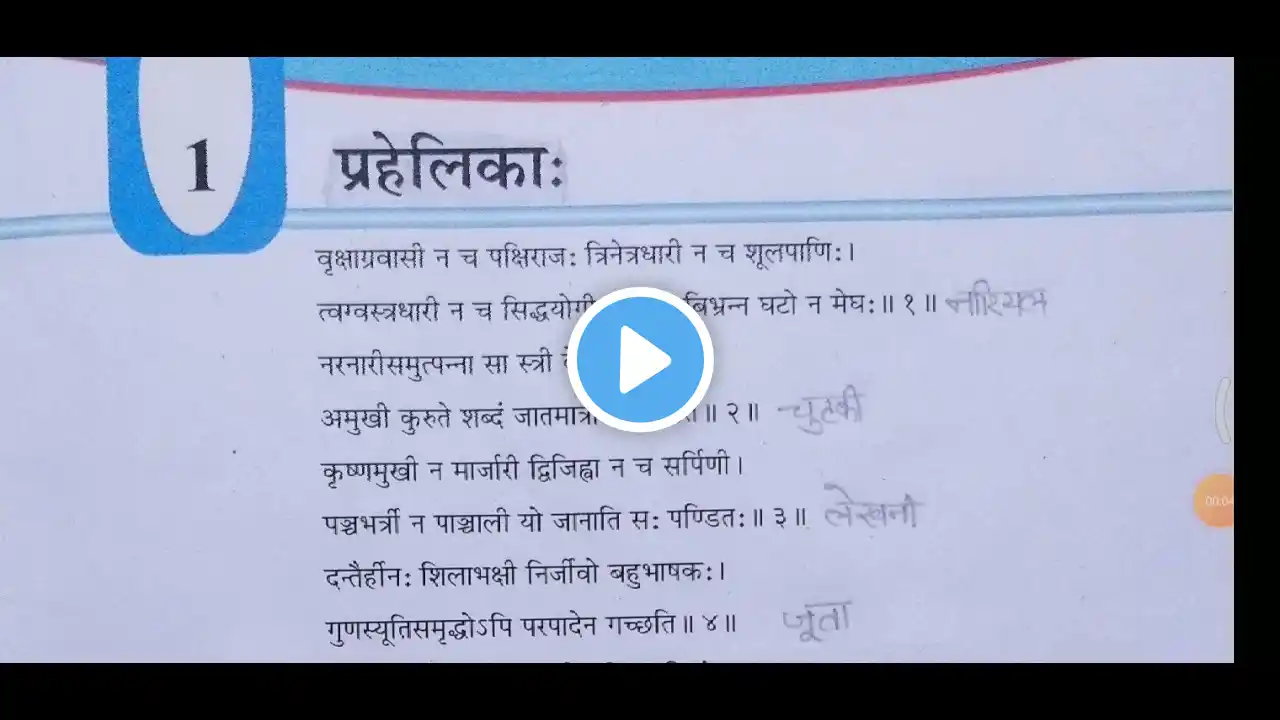 1
प्रहेलिकाः
वृक्षाग्रवासी न च पक्षिराजः त्रिनेत्रधारी न च शूलपाणिः।
त्वग्वस्त्रधारी न च सिद्धयोगी बिभ्रन्न घटो न मेघः॥ १॥ नारियल
नरनारीसमुत्पन्ना सा स्त्री
अमुखी कुरुते शब्दं जातमात्रा ॥ २॥ चुटकी
कृष्णमुखी न मार्जारी द्विजिह्वा न च सर्पिणी।
पञ्चभर्त्री न पाञ्चाली यो जानाति सः पण्डितः॥ ३॥ लेखनी
दन्तैर्हीनः शिलाभक्षी निर्जीवो बहुभाषकः।
गुणस्यूतिसमृद्धोऽपि परपादेन गच्छति॥ ४॥ जूता